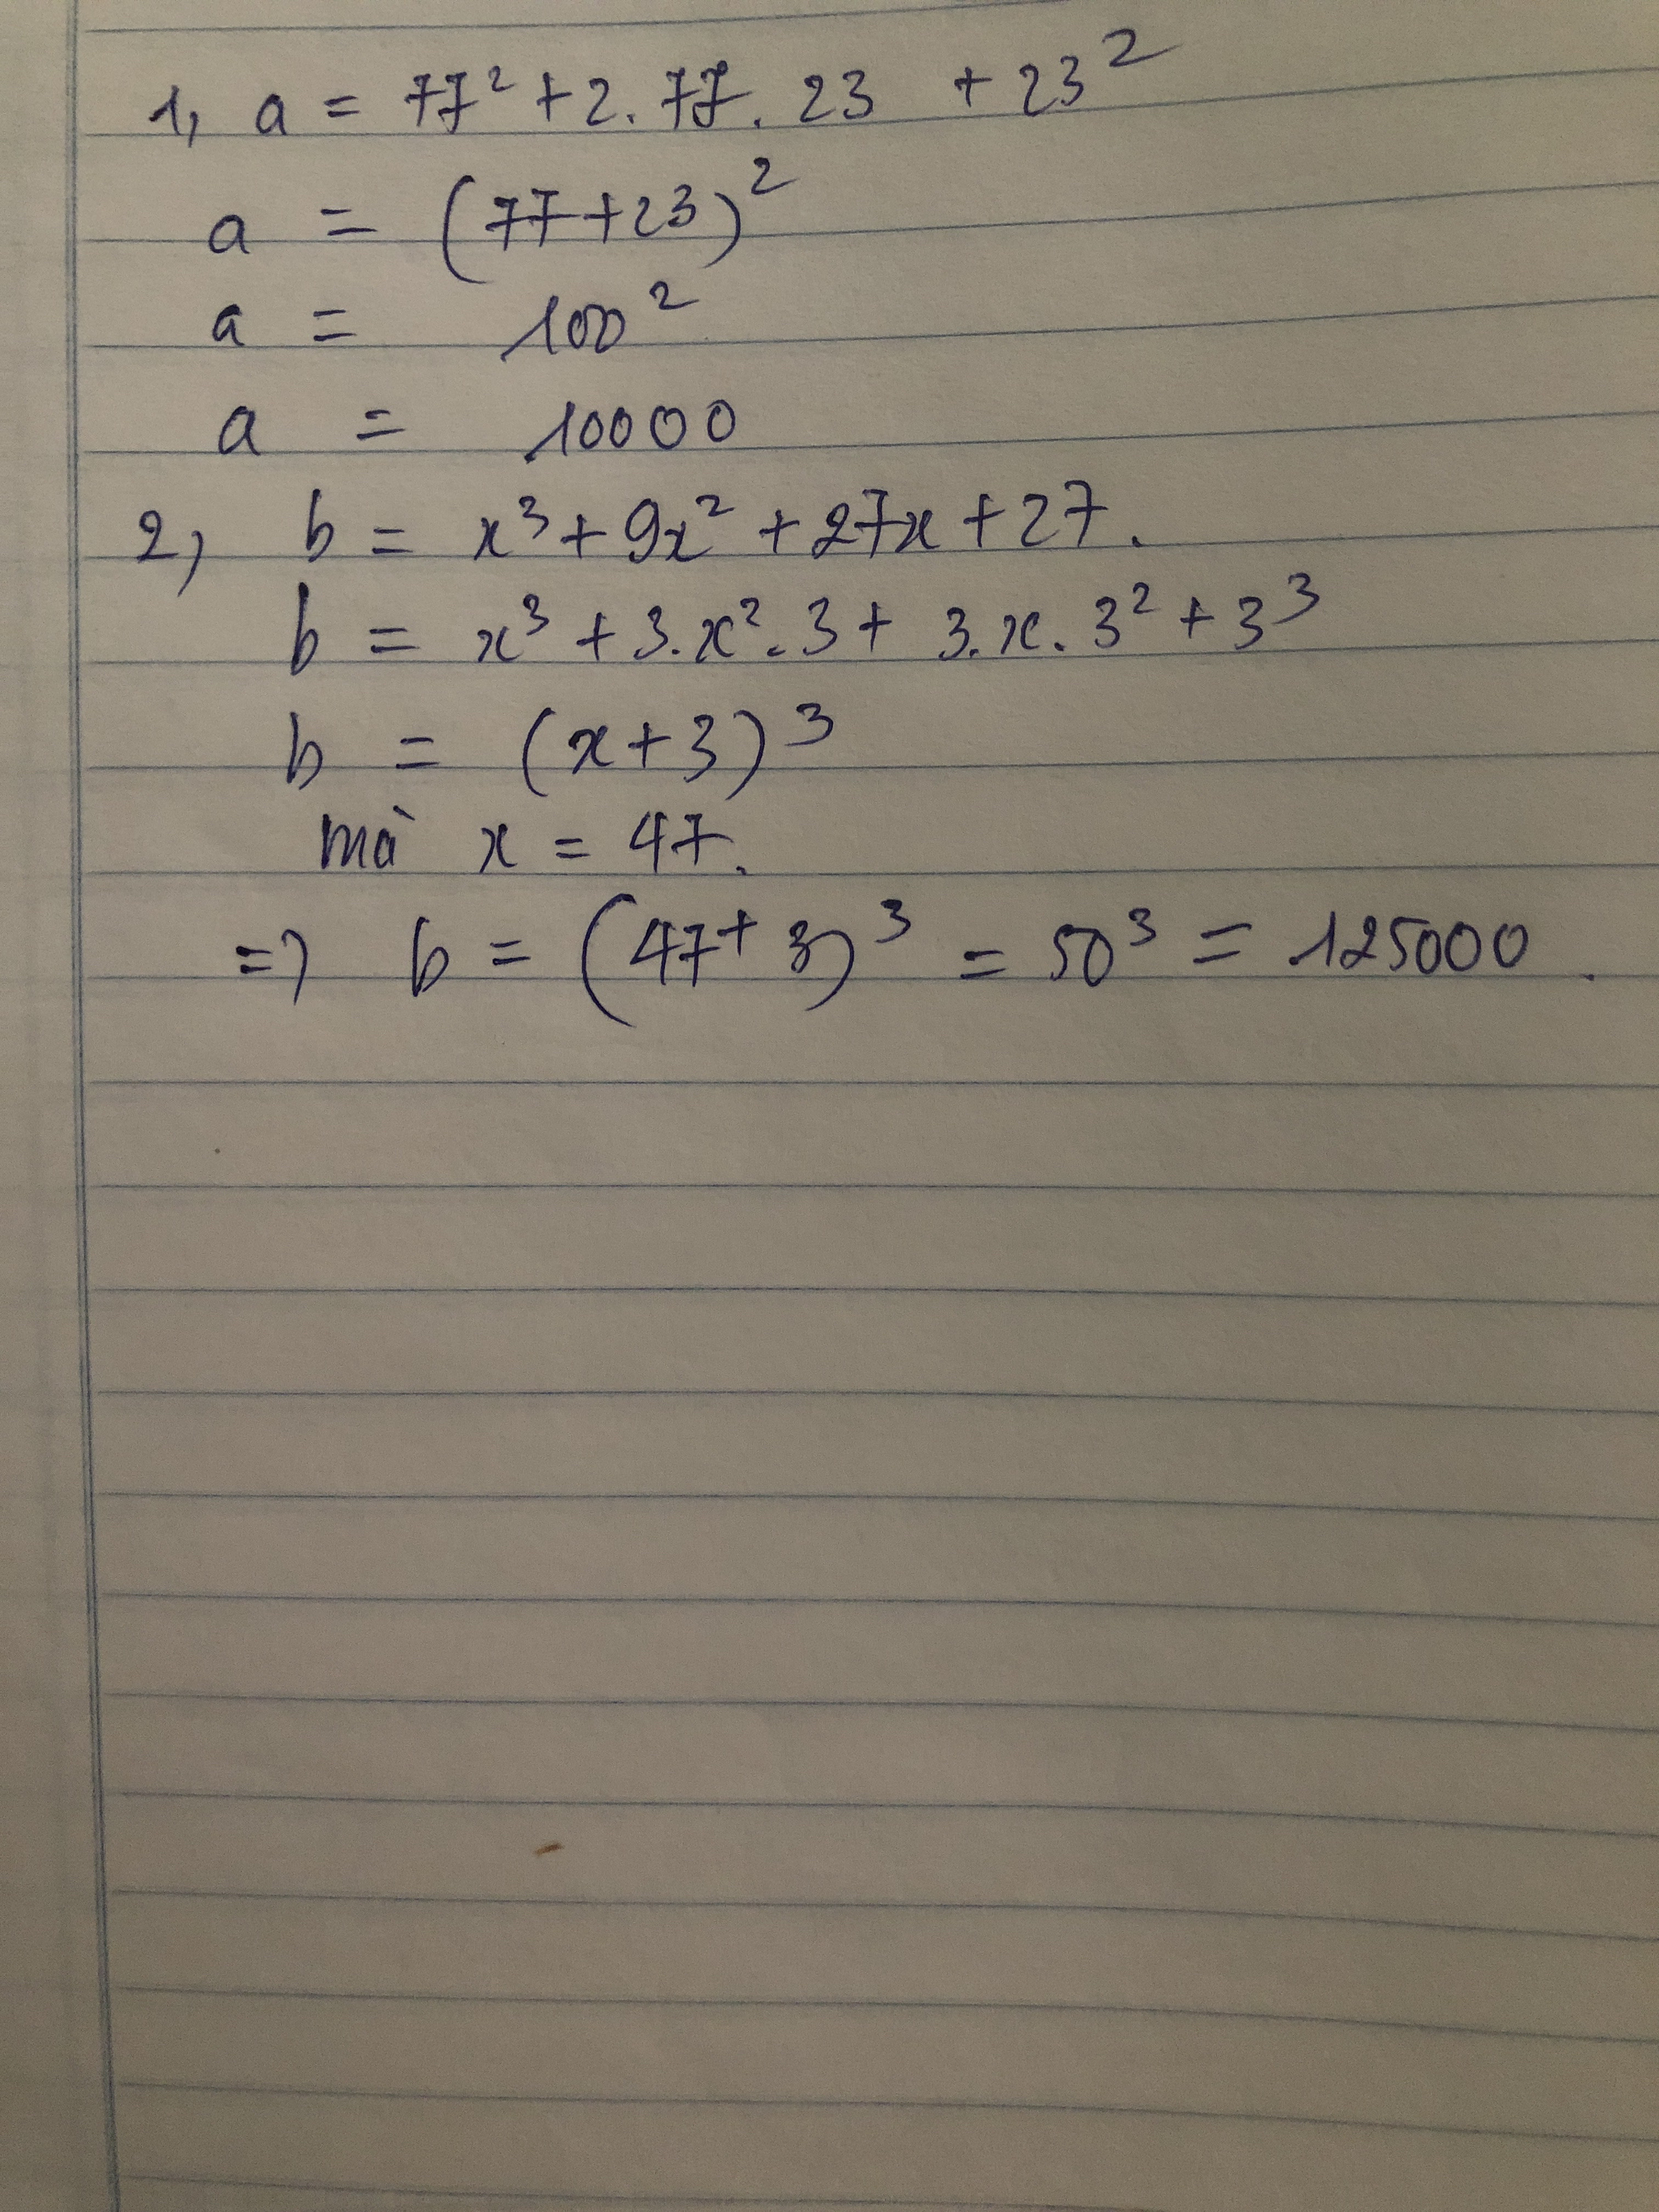 1, a = 77² + 2. 77. 23 + 23²
a = (77+23)²
a = 100²
a = 10000
2, b = x³ + 9x² + 27x + 27.
b = x³ + 3.x².3 + 3.x.3² + 3³
b = (x+3)³
mà x = 47.
=> b = (47+3)³ = 50³ = 125000.